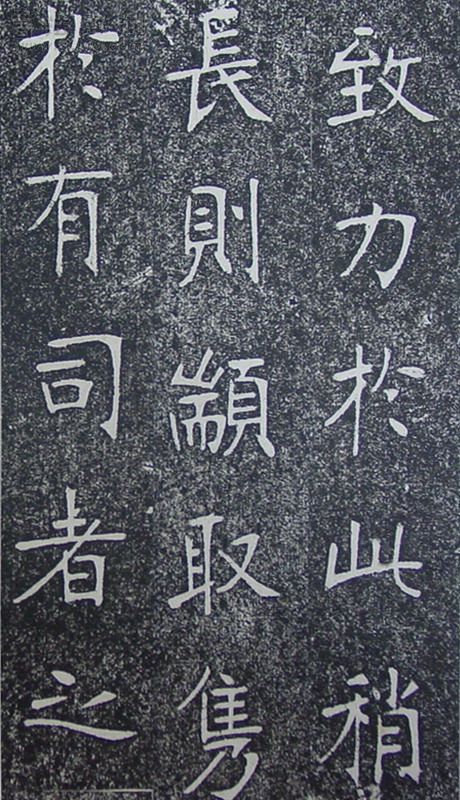 致力於此稍
長則顓取雋
於有司者之